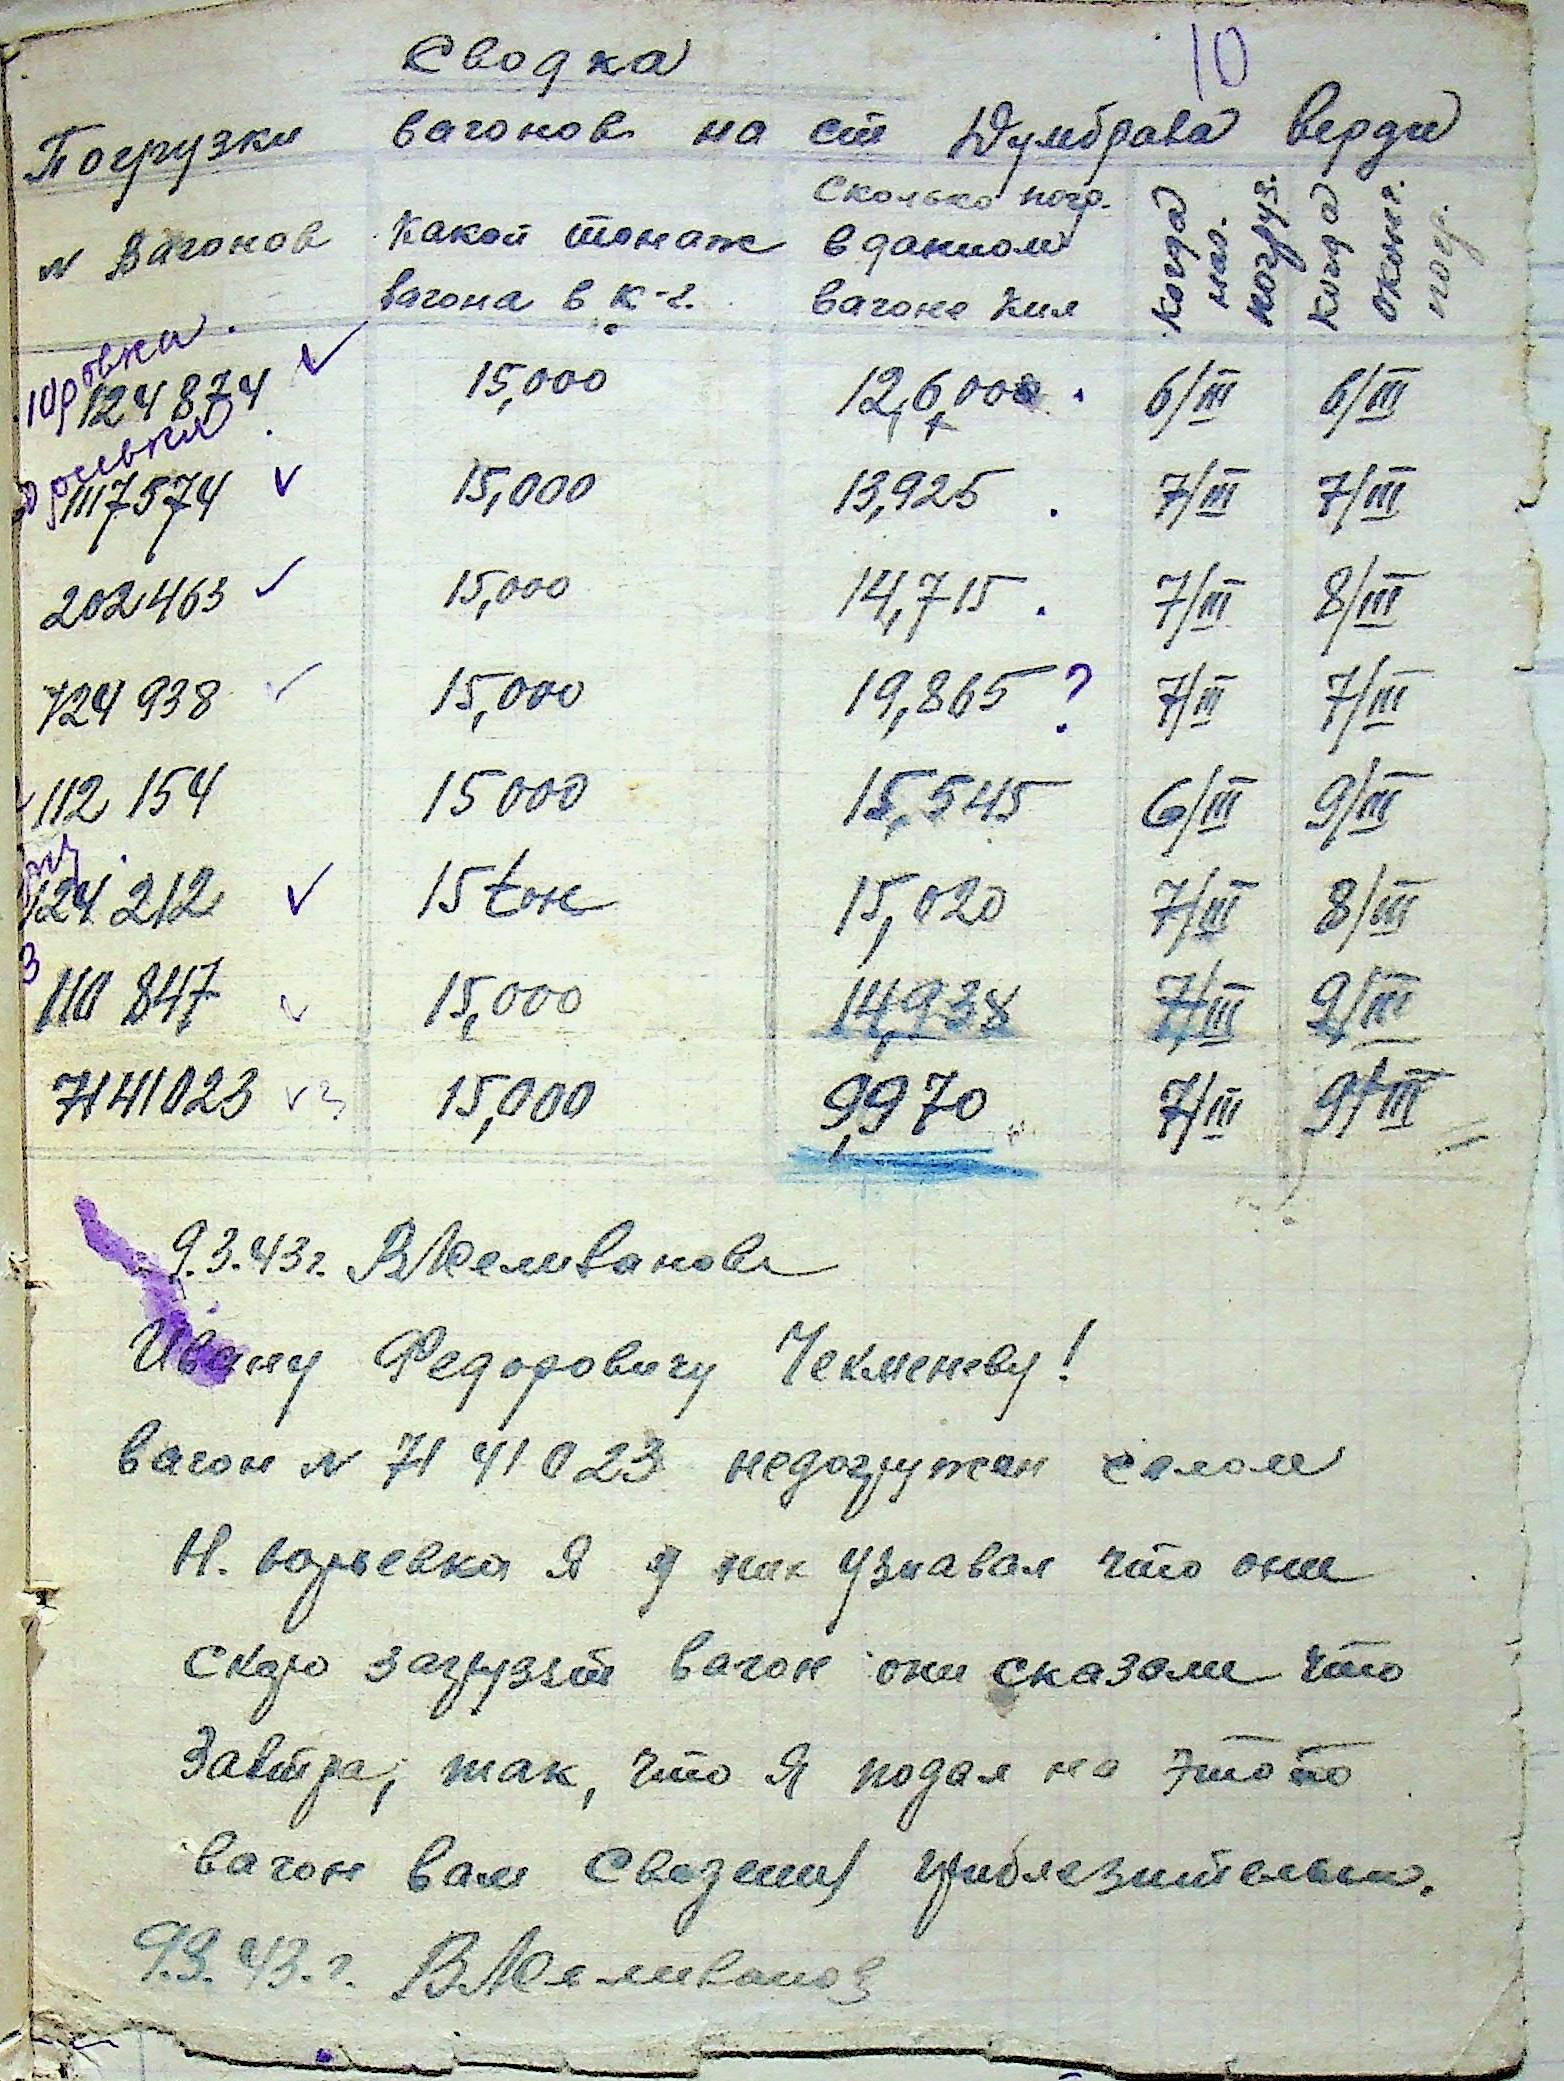 Сводка
10
Погрузки вагонов на ст Думбрава Верди
N Вагонов
Какой тонаж
вагона в к-г.
Сколько погр.
в данном
вагоне Кил
Когда
нач.
погруз.
Когда
оконч.
погр.
124874 ✓ 15,000 12,6,000 . 6/III 6/III
117574 ✓ 15,000 13,925 . 7/III 7/III
202463 ✓ 15,000 14,715 . 7/III 8/III
724 938 ✓ 15,000 19,865 ? 7/III 7/III
112 154 15000 15,545 6/III 9/III
124 212 ✓ 15 тон 15,020 7/III 8/III
110 847 ✓ 15,000 14,938 7/III 9/III
7141023 ✓ 3 15,000 9,970 7/III 9/III
9.3.43 г.
Ивану Федоровичу Чекменеву!
вагон N 7141023 недогружен селом
Н. Юрьевка Я у них узнавал что они
скоро загрузят вагон они сказали что
Завтра, так, что Я подал на этото
вагон вам Сведения приблезительны.
9.3.43. г.